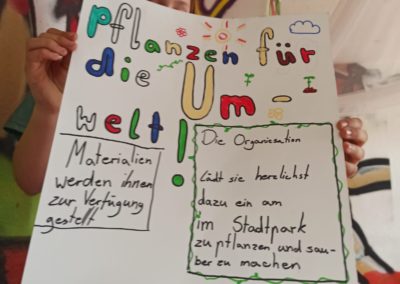 Pflanzen für
die Um-
welt!
Materialien
werden ihnen
zur Verfügung
gestellt
Die Organiesation
Lädt sie herzlichst
dazu ein am
im Stadtpark
zu pflanzen und sau-
ber zu machen